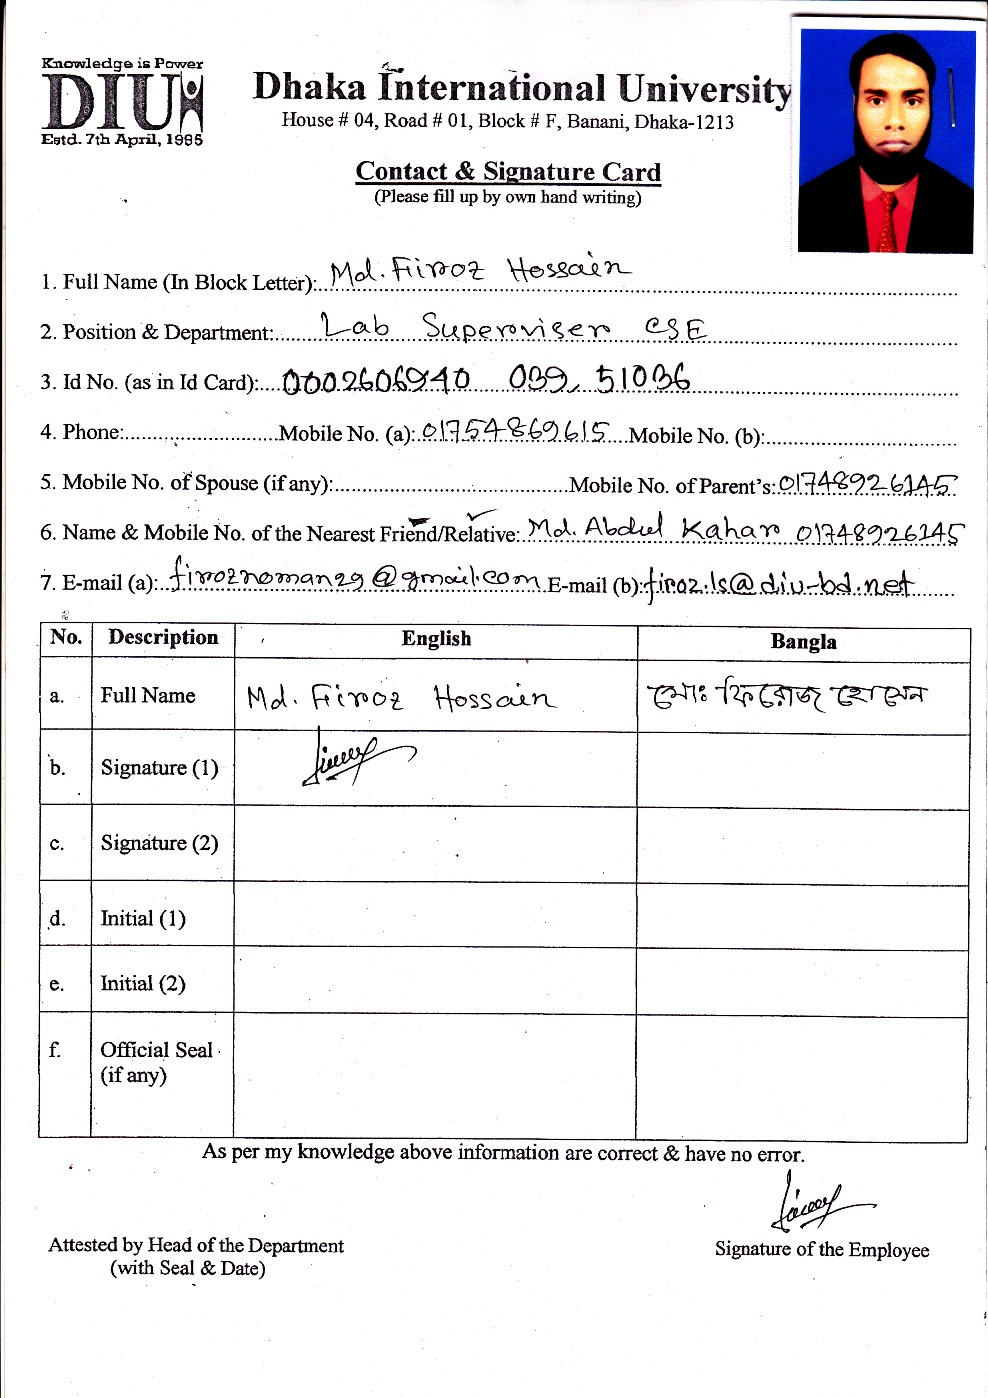 Knowledge is Power
DIU
Estd. 7th April, 1995
Dhaka International University
House # 04, Road # 01, Block # F, Banani, Dhaka-1213
Contact & Signature Card
(Please fill up by own hand writing)
1. Full Name (In Block Letter): Md. Firoz Hossain
2. Position & Department: Lab Superviser CSE
3. Id No. (as in Id Card): 0002606940 039, 51036
4. Phone: Mobile No. (a): 01754869615 Mobile No. (b):
5. Mobile No. of Spouse (if any): Mobile No. of Parent's: 01748926145
6. Name & Mobile No. of the Nearest Friend/Relative: Md. Abdul Kahar 01748926145
7. E-mail (a): firoznoman29@gmail.com E-mail (b): firoz.ls@diu-bd.net
No. Description English Bangla
a. Full Name Md. Firoz Hossain মোঃ ফিরোজ হোসেন
b. Signature (1)
c. Signature (2)
d. Initial (1)
e. Initial (2)
f. Official Seal
(if any)
As per my knowledge above information are correct & have no error.
Attested by Head of the Department
(with Seal & Date)
Signature of the Employee